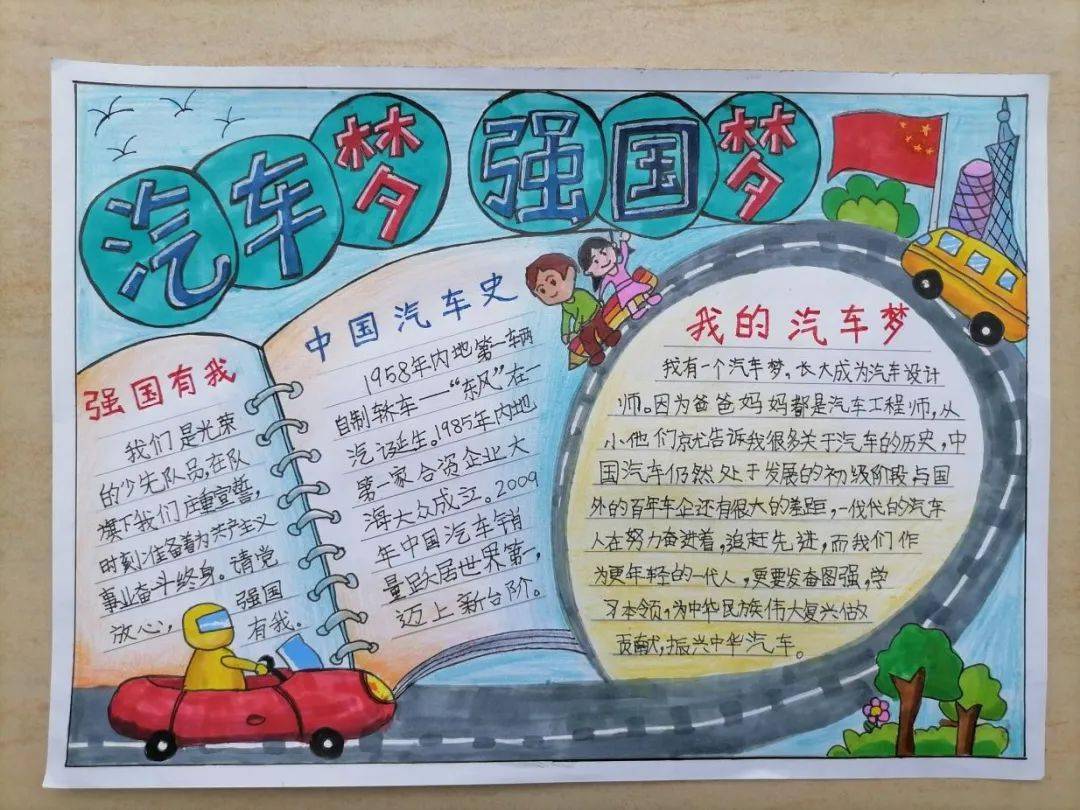 汽车梦 强国梦
强国有我
我们是光荣
的少先队员,在队
旗下我们庄重宣誓,
时刻准备着为共产主义
事业奋斗终身。请党
放心, 强国
有我。
中国汽车史
1958年内地第一辆
自制轿车——“东风”在一
汽诞生。1985年内地
第一家合资企业大
海大众成立。2009
年中国汽车销
量跃居世界第一,
迈上新台阶。
我的汽车梦
我有一个汽车梦,长大成为汽车设计
师。因为爸爸妈妈都是汽车工程师,从
小他们就告诉我很多关于汽车的历史,中
国汽车仍然处于发展的初级阶段与国
外的百年车企还有很大的差距,一代代的汽车
人在努力奋进着,追赶先进,而我们作
为更年轻的一代人,更要发奋图强,学
习本领,为中华民族伟大复兴做
贡献,振兴中华汽车。